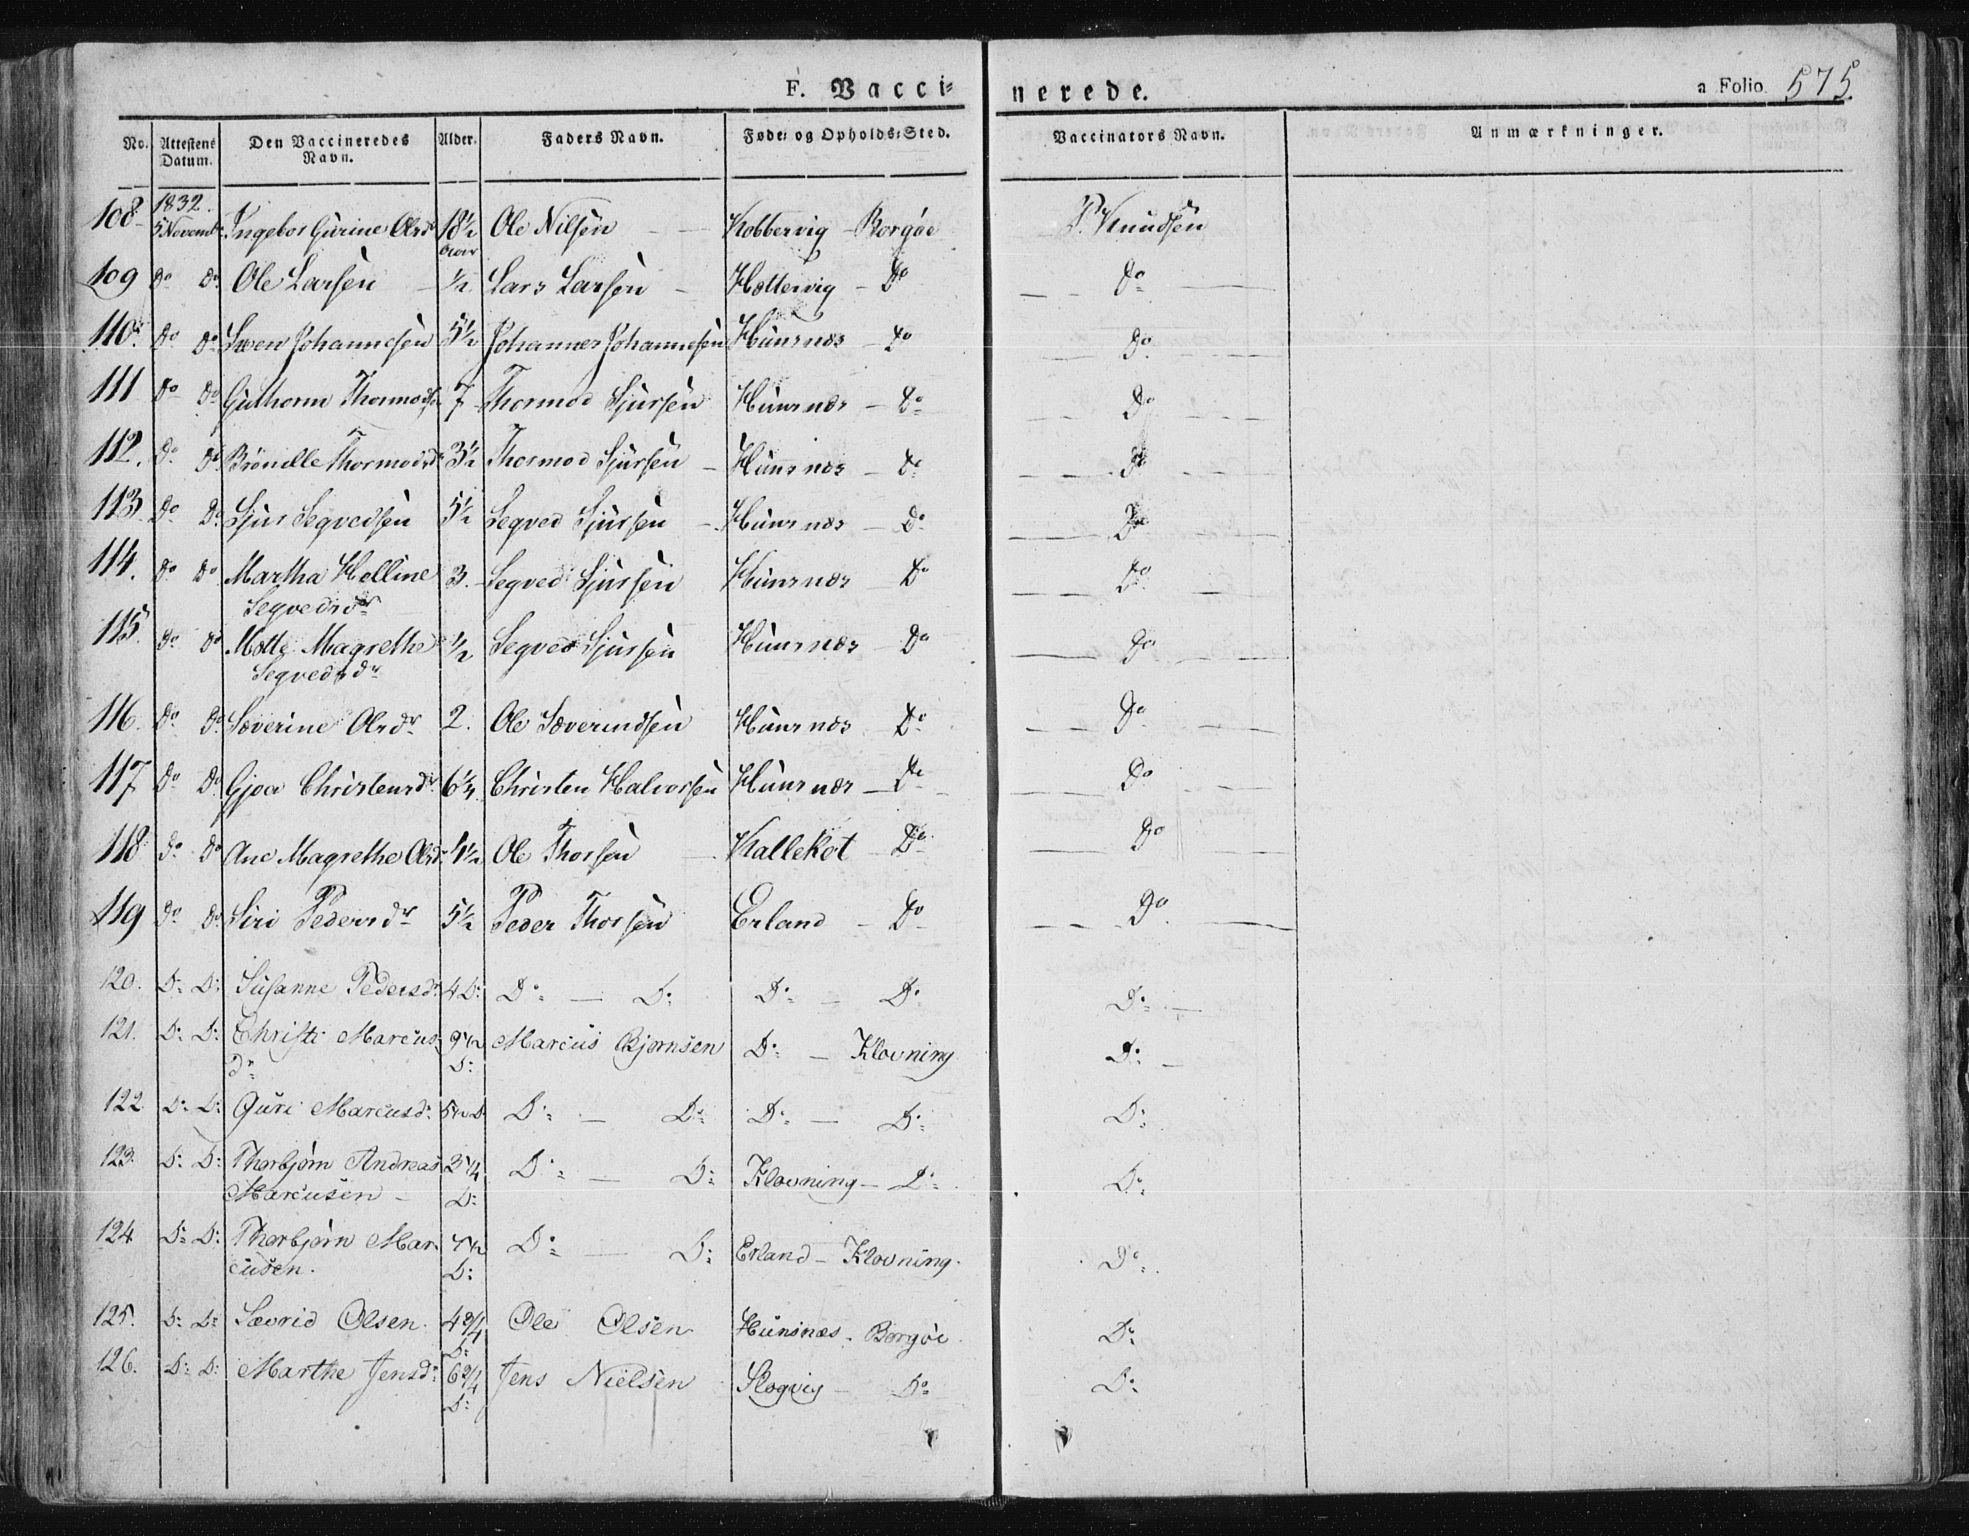 F. Vacci-nerede. a Folio 575
No. Attestens Datum. Den Vaccineredes Navn. Alder. Faders Navn. Føde- og Opholds-Sted. Vaccinators Navn. Anmærkninger.
1832.
108 5 Novemb. Ingebor Gurine Olsdr 18½ Ole Nilsen Kobbervig - Borgøe P. Knudsen
109 Do Do Ole Larsen - ½ Lars Larsen - Hettervig - Do Do
110 Do Do Swen Johannesen 5½ Johannes Johannesen Hunsnæs - Do Do
111 Do Do Guthorm Thormodsen 7 Thormod Sjursen Hunsnæs - Do Do
112. Do Do Brönille Thormodsdr 3½ Thormod Sjursen - Hunsnæs - Do Do
113 Do Do Sjur Segvedsen 5½ Segved Sjursen - Hunsnæs - Do Do
114. Do Do Martha Helline 3. Segved Sjursen Hunsnæs - Do Do
Segvedsdr
115. Do Do Mette Magrethe ½ Segved Sjursen Hunsnæs - Do Do
Segvedsdr
116. Do Do Severine Olsdr 2. Ole Severindsen Hunsnæs - Do Do
117 Do Do Gjoa Christensdr Christen Halvorsen Hunsnæs - Do Do
118 Do Do Ane Magrethe Olsdr 4½ Ole Thorsen Kallekot - Do Do
119 Do Do Siri Pedersdr 5½ Peder Thorsen Erland - Do Do
120. Do Do Susanne Pedersdr 4 Do Do - Do Do - Do Do -
121. Do Do Christi Marcus- 9½ Marcus Bjørnsen Do - Klovning Do -
dr Do
122 Do Do Guri Marcusdr 5½ Do Do - Do Do - Do Do
123. Do Do Thorbjørn Andreas 3¼ Do - Do Klovning - Do Do
Marcusen - Do
124 Do Do Thorbjørn Mar- ½ Do - Do Erland - Klovning. Do
cusen. Do
125. Do Do Sævrid Olsen. 4¾ Ole Olsen Hunsnæs. Borgöe Do
Do
126. Do Do Marthe Jensdr 6¾ Jens Nielsen Slogvig - Do Do
Do